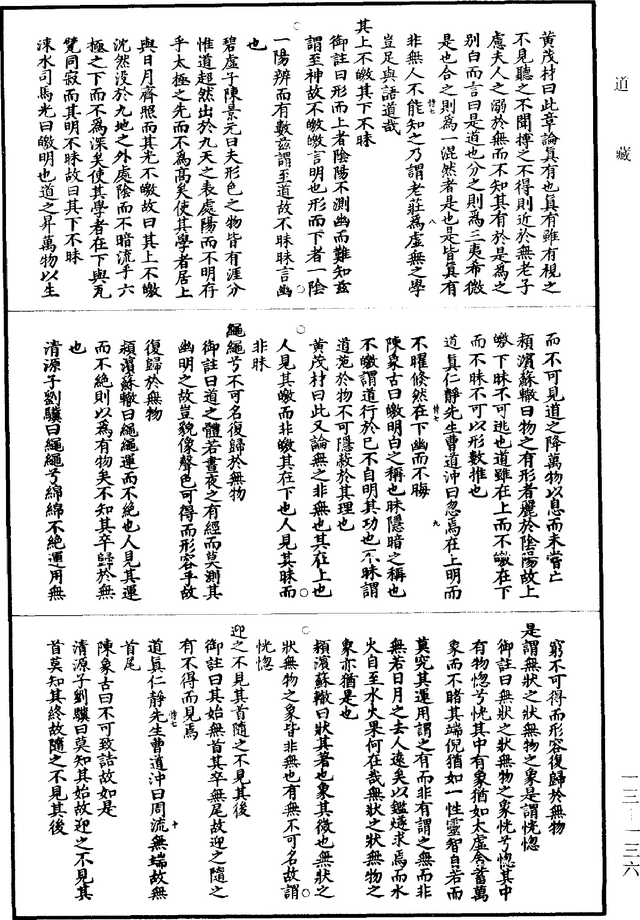 道藏
黃茂材曰此章論真有也真有雖有視之
不見聽之不聞摶之不得則近於無老子
慮夫人之溺於無而不知其有於是為之
別白而言曰是道也分之則為三夷希微
是也合之則為一混然者是也是皆真有
非無人不能知之乃謂老莊為虛無之學
豈足與語道哉
其上不皦其下不昧
御註曰形而上者陰陽不測幽而難知茲
謂至神故不皦皦言明也形而下者一陰
一陽辨而有數茲謂至道故不昧昧言幽
也
碧虛子陳景元曰夫形色之物皆有涯分
惟道超然出於九天之表處陽而不明存
乎太極之先而不為高矣使其學者居上
與日月齊照而其光不皦故曰其上不皦
沈然沒於九地之外處陰而不暗流乎六
極之下而不為深矣使其學者在下與瓦
甓同寂而其明不昧故曰其下不昧
涑水司馬光曰皦明也道之昇萬物以生
而不可見道之降萬物以息而未嘗亡
潁濱蘇轍曰物之有形者麗於陰陽故上
皦下昧不可逃也道雖在上而不皦在下
而不昧不可以形數推也
道真仁靜先生曹道沖曰忽焉在上明而
不曜倐然在下幽而不晦
陳象古曰皦明白之稱也昧隱暗之稱也
不皦謂道行於己不自明其功也不昧謂
道蒞於物不可隱赦於其理也
黃茂材曰此又論無之非無也其在上也
人見其皦而非皦其在下也人見其昧而
非昧
繩繩兮不可名復歸於無物
御註曰道之體若晝夜之有經而莫測其
幽明之故豈貌像聲色可得而形容乎故
復歸於無物
潁濱蘇轍曰繩繩運而不絕也人見其運
而不絕則以為有物矣不知其卒歸於無
也
清源子劉驥曰繩繩兮綿綿不絕運用無
窮不可得而形容復歸於無物
是謂無狀之狀無物之象是謂恍惚
御註曰無狀之狀無物之象恍兮惚其中
有物惚兮恍其中有象猶如太虛含蓄萬
象而不睹其端倪猶如一性靈智自若而
莫究其運用謂之有而非有謂之無而非
無若日月之去人遠矣以鑑燧求焉而水
火自至水火果何在哉無狀之狀無物之
象亦猶是也
潁濱蘇轍曰狀其著也象其微也無狀之
狀無物之象皆非無也有無不可名故謂
恍惚
迎之不見其首隨之不見其後
御註曰其始無首其卒無尾故迎之隨之
有不得而見焉
道真仁靜先生曹道沖曰周流無端故無
首尾
陳象古曰不可致詰故如是
清源子劉驥曰莫知其始故迎之不見其
首莫知其終故隨之不見其後
一三-一三六